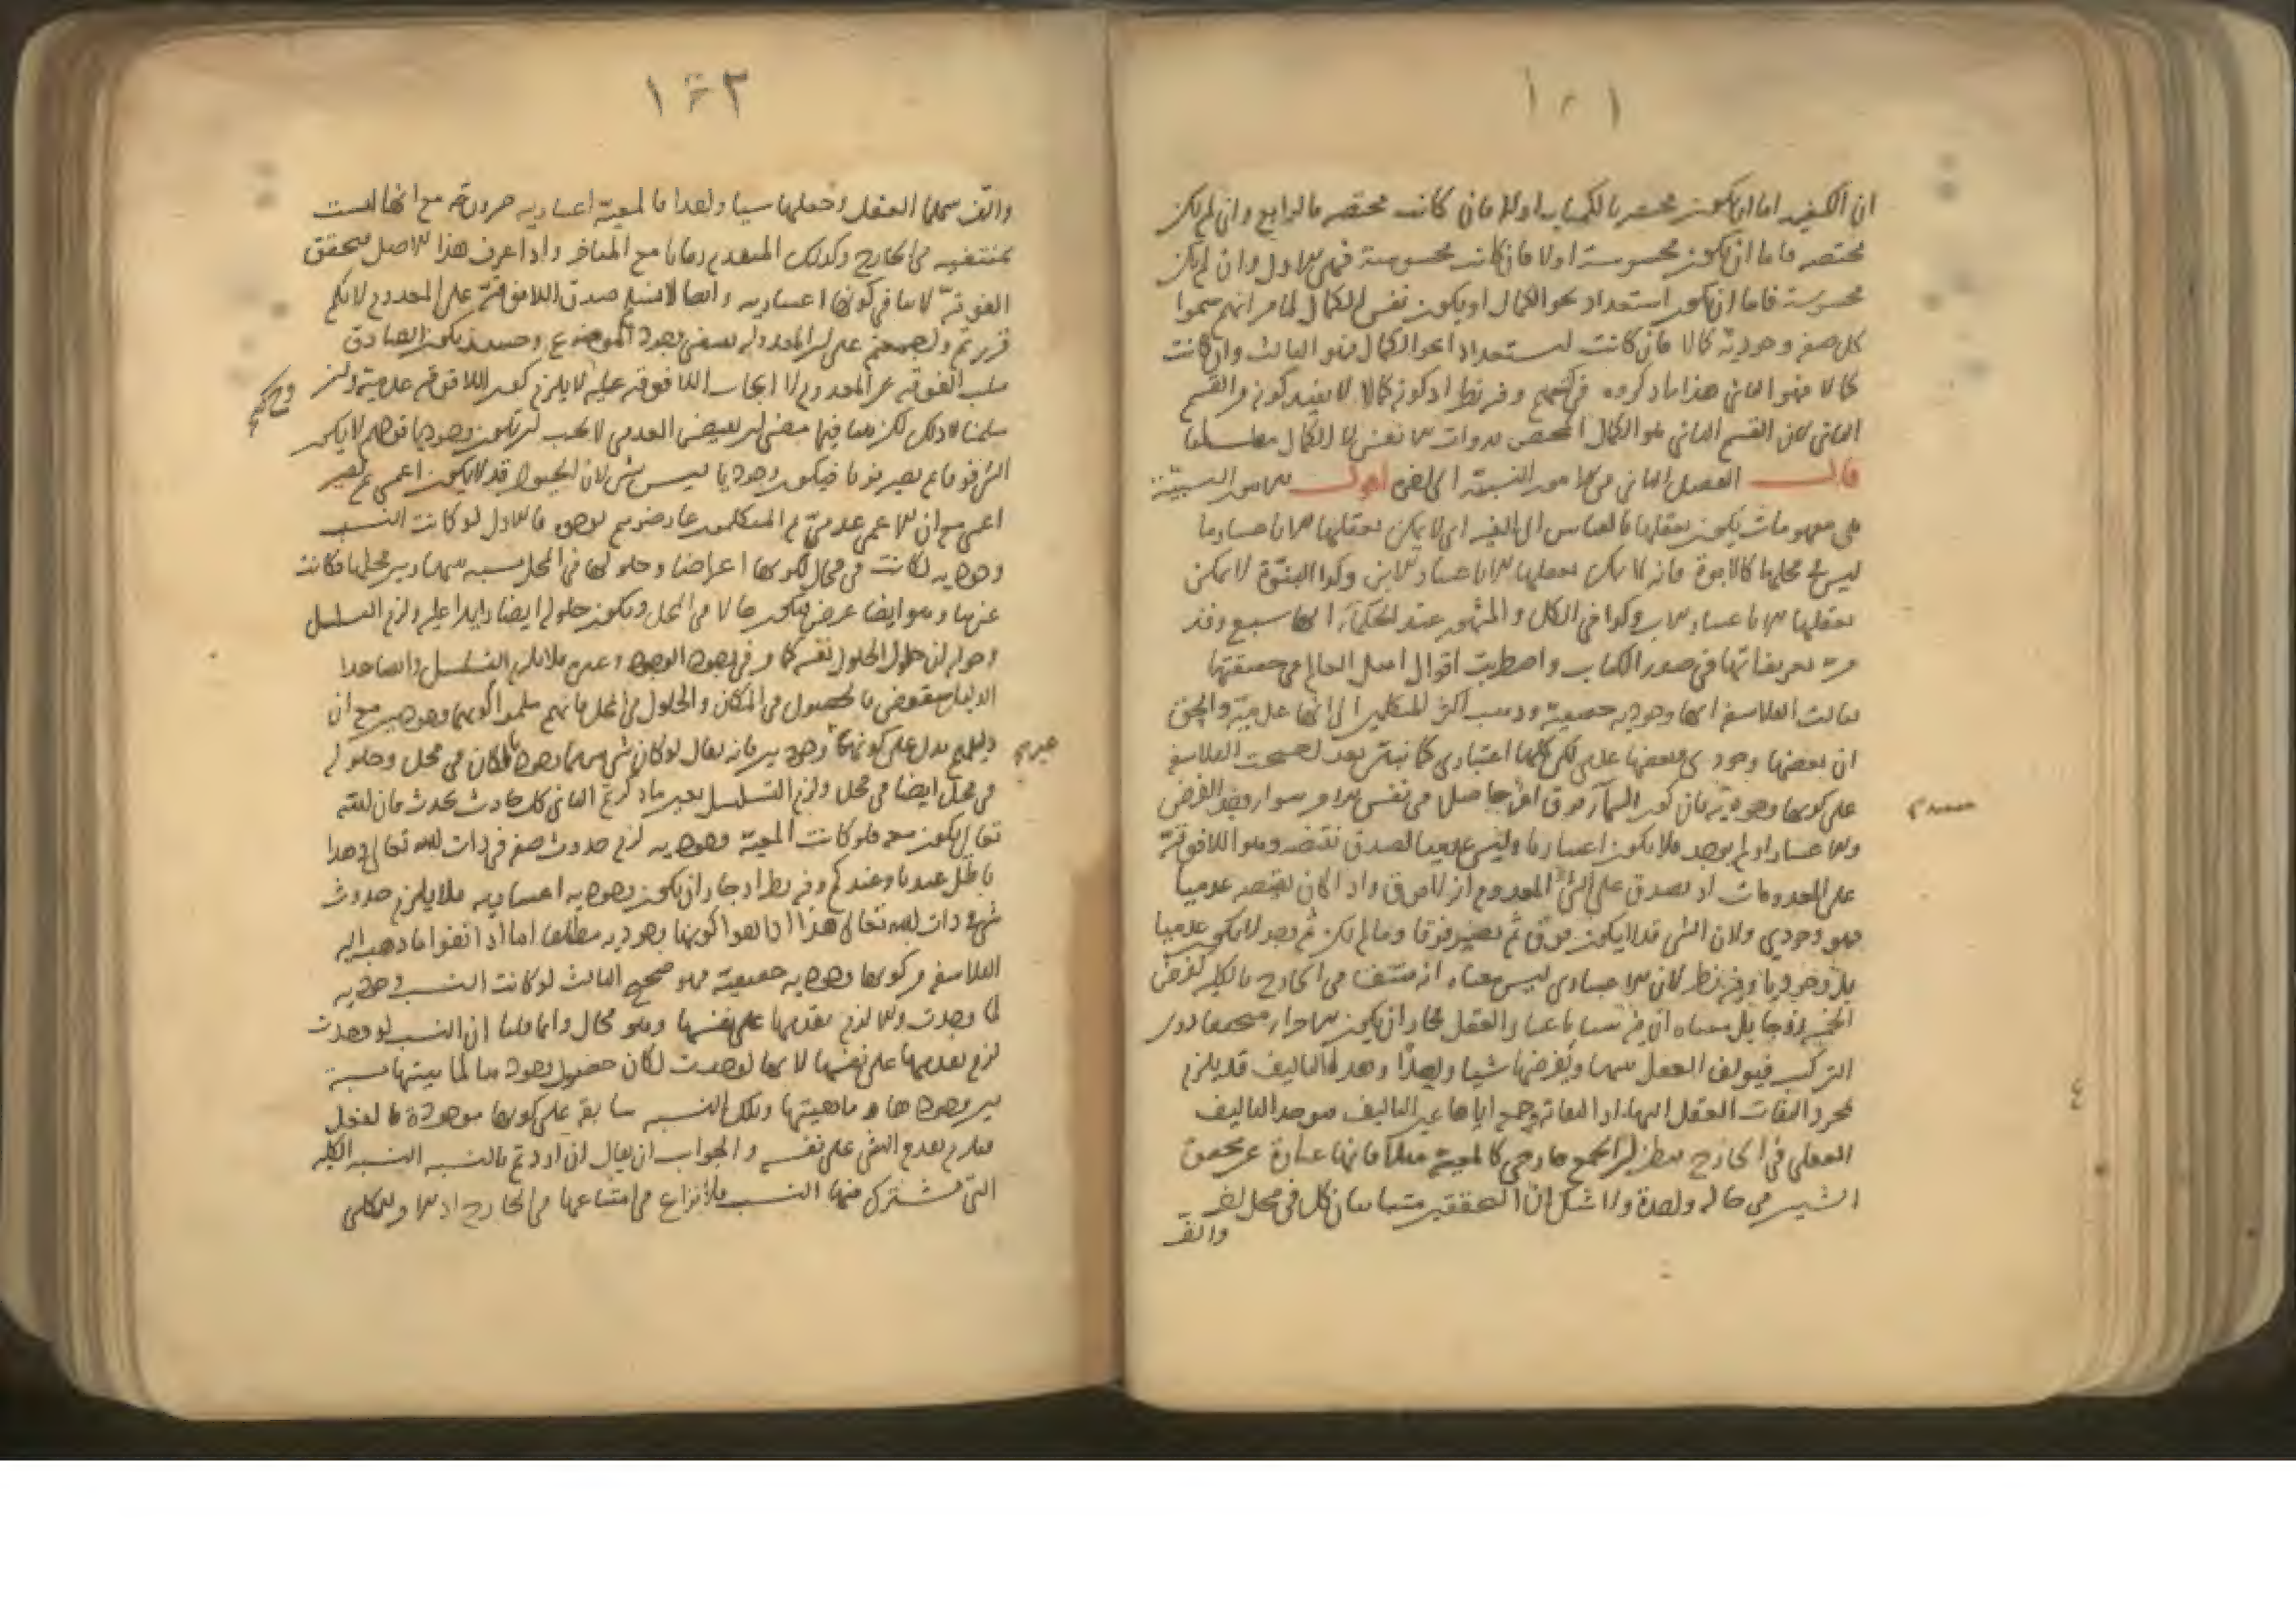 ١٠١
ان الكيفية اما ان يكون مختصة بالكميات او لا فان كانت مختصة فالرابع وان لم يكن
مختصة فاما ان يكون محسوسة اولا فان كانت محسوسة فهي الاول وان لم يكن
محسوسة فاما ان يكون استعدادا نحو الكمال او يكون نفس الكمال لما مر انهم سموا
كل صفة وجودية كمالا فان كانت استعدادا نحو الكمال فهو الثالث وان كانت
كمالا فهو الثاني هذا ما ذكروه وفيه نظر اذ كونه كمالا لا يفيد كونه من القسم
الثاني لان القسم الثاني هو الكمال المختص بذوات الانفس لا الكمال مطلقا
قال الفصل الثاني في الامور النسبية الى اخره اقول الامور النسبية
هي مفهومات يكون تعقلها بالقياس الى الغير اي لا يمكن تعقلها الا باعتبار ما
ليس في محلها كالابوة فانه لا يمكن تعقلها الا باعتبار الابن وكذا البنوة لا يمكن
تعقلها الا باعتبار الاب وكذا في الكل والمشهور عند الحكماء انها سبع وقد
مر تعريفاتها في صدر الكتاب واضطربت اقوال اهل العالم في حقيقتها
فقالت الفلاسفة انها وجودية حقيقية وذهب اكثر المتكلمين الى انها عدمية والحق
ان بعضها وجودي وبعضها عدمي لكن كلها اعتباري كما نبين بعد احتجت الفلاسفة
على كونها وجودية بان كون السماء فوق الارض حاصل في نفس الامر سواء وجد الفرض
والاعتبار او لم يوجد فلا يكون اعتباريا وليس عدميا لصدق نقيضه وهو اللافوقية
على المعدومات اذ يصدق على الشيء المعدوم انه لا فوق واذا كان نقيضه عدميا
فهو وجودي ولان الشيء قد لا يكون فوق ثم يصير فوقا وما لم يكن ثم وجد لا يكون عدميا
بل وجوديا وفيه نظر لان الاعتباري ليس معناه انه منتف في الخارج بالكلية كفرض
الخمسة زوجا بل معناه ان باعتبار العقل فجاز ان يكون
التركيب فيؤلف العقل بينها ويفرضها شيئا واحدا وهذه التاليف قد يلزم
مجرد التفات العقل اليها اذ
العقلي في الخارج كالمعية مثلا فانها عبارة عن تحقق
الشيئين في حالة واحدة ولا شك ان التحققين متباينان كل في محل اخر
والفـ
١٠٢
والف بينهما العقل وجعلهما شيئا واحدا فالمعية اعتبارية مع انها ليست
بمنتفية في الخارج وكذلك المتقدم زمانا مع المتاخر واذا عرف هذا الاصل فتحقق
الفوقية لا ينافي كونها اعتبارية وايضا لا نسلم صدق اللافوقية على المعدوم لانكم
قررتم على ان المعدولة يقتضي وجود الموضوع وحينئذ يكون الصادق
سلب الفوقية عن المعدوم لا ايجاب اللافوقية عليه فلا يلزم كون اللافوقية عدمية
سلمنا ذلك لكن بينا فيما مضى ان نقيض العدمي لا يجب ان يكون وجوديا قولهم لا يكون
الشيء فوقا ثم يصير فوقا فيكون وجوديا ليس بشيء لان الحيوان قد لا يكون اعمى ثم يصير
اعمى مع ان الاعمى عدمي ثم المتكلمون عارضوهم بوجوه فالاول لو كانت النسب
وجودية لكانت في محال لكونها اعراضا وحلولها في المحل نسبة بينها وبين محلها فكانت
غيرها وهو ايضا عرض فيكون حالا في المحل ويكون حلوله ايضا زايدا عليه ولزم التسلسل
وجوابه ان حلول الحلول نفسه كما مر في وجود الوجود وغيره فلا يلزم التسلسل وايضا هذا
الدليل منقوض بالحصول في المكان والحلول في المحل فانهم سلموا كونهما وجوديين مع ان
دليلهم يدل على كونهما غير وجوديين فانه يقال لو كان شيء منهما وجوديا لكان في محل وحلوله
في محل ايضا في محل ولزم التسلسل بعين ما ذكرتم الثاني كل حادث يحدث فان الله
تعالى يكون معه فلو كانت المعية وجودية لزم حدوث صفة في ذات الله تعالى وهذا
باطل عندنا وعندكم وفيه نظر اذ جاز ان يكون وجودية اعتبارية فلا يلزم حدوث
شيء في ذات الله تعالى هذا اذا نفوا كونها وجودية مطلقا اما اذا نفوا ما ذهب اليه
الفلاسفة من كونها وجودية حقيقية فهو صحيح الثالث لو كانت النسب وجودية
لما وجدت والا لزم تقدمها على نفسها وهو محال وانما قلنا ان النسب لو وجدت
لزم تقدمها على نفسها لانها لو وجدت لكان حصول وجودها لماهيتها نسبة
بين وجودها وماهيتها وتلك النسبة سابقة على كونها موجودة بالفعل
فيلزم تقدم الشيء على نفسه والجواب ان يقال ان اردتم بالنسبة النسبة الكلية
التي يشترك فيها النسب فلا نزاع في امتناعها في الخارج